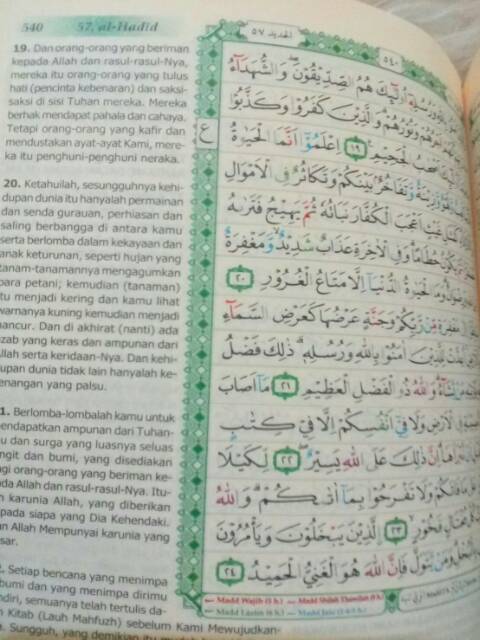 540 57. al-Hadid
19. Dan orang-orang yang beriman
kepada Allah dan rasul-rasul-Nya,
mereka itu orang-orang yang tulus
hati (pencinta kebenaran) dan saksi-
saksi di sisi Tuhan mereka. Mereka
berhak mendapat pahala dan cahaya.
Tetapi orang-orang yang kafir dan
mendustakan ayat-ayat Kami, mere-
ka itu penghuni-penghuni neraka.
20. Ketahuilah, sesungguhnya kehi-
dupan dunia itu hanyalah permainan
dan senda gurauan, perhiasan dan
saling berbangga di antara kamu
serta berlomba dalam kekayaan dan
anak keturunan, seperti hujan yang
tanam-tanamannya mengagumkan
para petani; kemudian (tanaman)
itu menjadi kering dan kamu lihat
warnanya kuning kemudian menjadi
hancur. Dan di akhirat (nanti) ada
azab yang keras dan ampunan dari
Allah serta keridaan-Nya. Dan kehi-
dupan dunia tidak lain hanyalah ke-
senangan yang palsu.
1. Berlomba-lombalah kamu untuk
endapatkan ampunan dari Tuhan-
u dan surga yang luasnya seluas
ngit dan bumi, yang disediakan
gi orang-orang yang beriman ke-
da Allah dan rasul-rasul-Nya. Itu-
n karunia Allah, yang diberikan
pada siapa yang Dia Kehendaki.
an Allah Mempunyai karunia yang
sar.
2. Setiap bencana yang menimpa
bumi dan yang menimpa dirimu
ndiri, semuanya telah tertulis da-
n Kitab (Lauh Mahfuzh) sebelum Kami Mewujudkan-
Sungguh, yang demikian itu
الحديد ٥٧ ٥٤٠
أُولَٰئِكَ هُمُ الصِّدِّيقُونَ وَالشُّهَدَاءُ
وَنُورُهُمْ وَالَّذِينَ كَفَرُوا وَكَذَّبُوا
الْجَحِيمِ ١٩ اعْلَمُوا أَنَّمَا الْحَيَاةُ
وَزِينَةٌ وَتَفَاخُرٌ بَيْنَكُمْ وَتَكَاثُرٌ فِي الْأَمْوَالِ
غَيْثٍ أَعْجَبَ الْكُفَّارَ نَبَاتُهُ ثُمَّ يَهِيجُ فَتَرَاهُ
يَكُونُ حُطَامًا وَفِي الْآخِرَةِ عَذَابٌ شَدِيدٌ وَمَغْفِرَةٌ
وَمَا الْحَيَاةُ الدُّنْيَا إِلَّا مَتَاعُ الْغُرُورِ ٢٠
مَغْفِرَةٍ مِنْ رَبِّكُمْ وَجَنَّةٍ عَرْضُهَا كَعَرْضِ السَّمَاءِ
لِلَّذِينَ آمَنُوا بِاللَّهِ وَرُسُلِهِ ذَٰلِكَ فَضْلُ
يَشَاءُ وَاللَّهُ ذُو الْفَضْلِ الْعَظِيمِ ٢١ مَا أَصَابَ
فِي الْأَرْضِ وَلَا فِي أَنْفُسِكُمْ إِلَّا فِي كِتَابٍ
إِنَّ ذَٰلِكَ عَلَى اللَّهِ يَسِيرٌ ٢٢ لِكَيْلَا
فَاتَكُمْ وَلَا تَفْرَحُوا بِمَا آتَاكُمْ وَاللَّهُ
مُخْتَالٍ فَخُورٍ ٢٣ الَّذِينَ يَبْخَلُونَ وَيَأْمُرُونَ
وَمَنْ يَتَوَلَّ فَإِنَّ اللَّهَ هُوَ الْغَنِيُّ الْحَمِيدُ ٢٤
ع
Madd Wajib (5 h.) Madd Shilah Thawilah
Madd Lazim (6 h.) Madd Jaiz